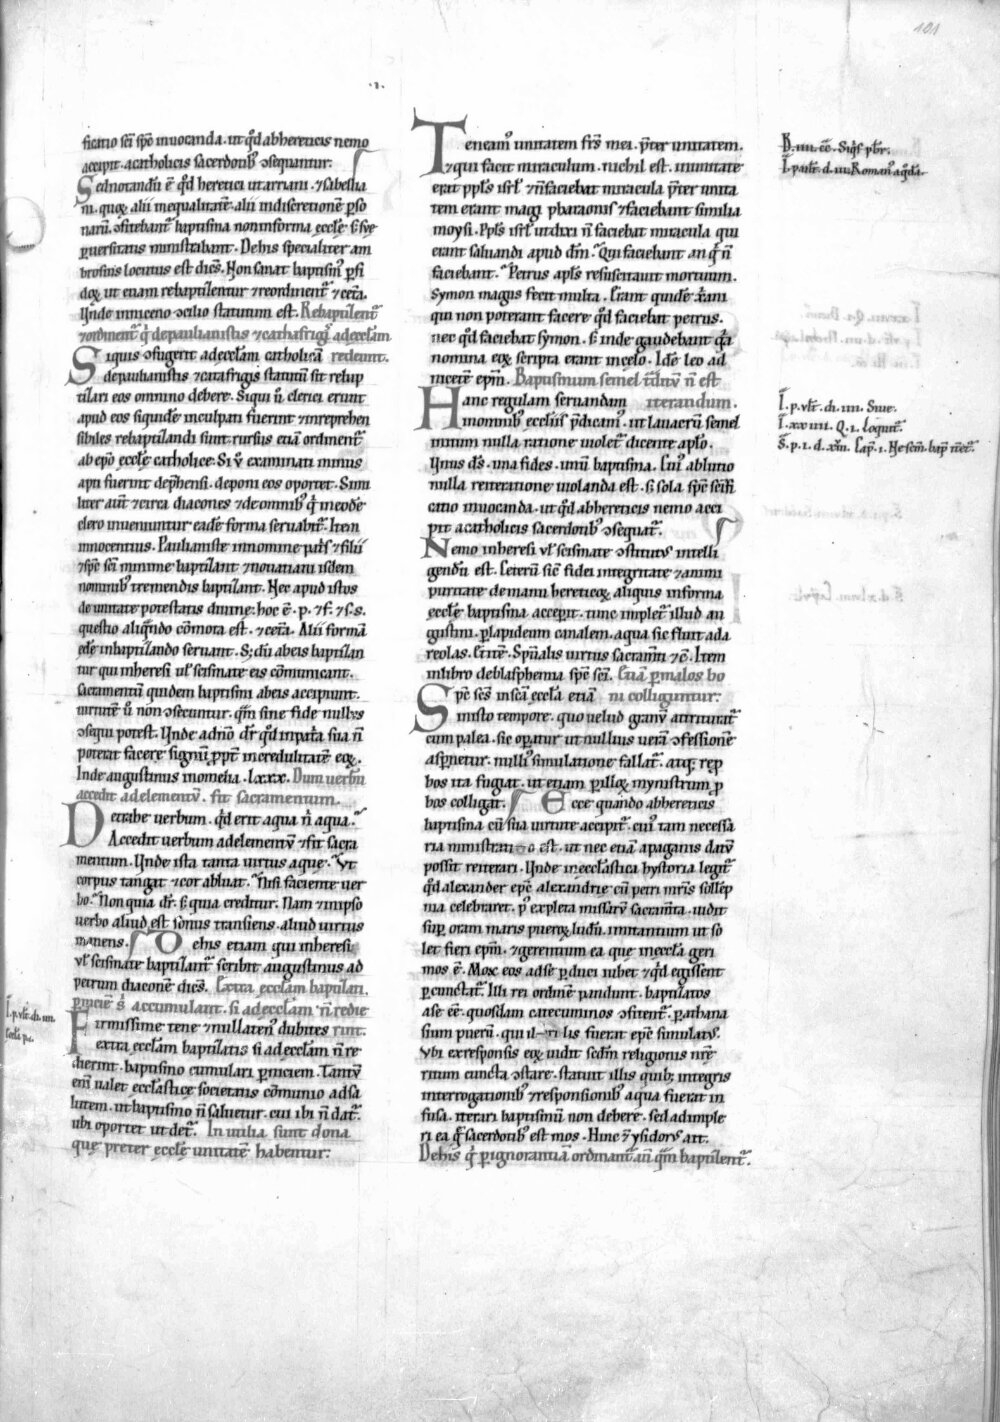 101
.i.
ficatio sc̄i sp̄c inuocanda. ut qd̄ ab hereticis nemo
accipit. a catholicis sacerdotib; ɔsequantur:
Sed notandū ē qd̄ heretici ut arriani. ⁊ sabellia
ni. quoꝝ alii inequalitatē alii indiscretionē p̄so
narū. ɔfitebant᷑ baptisma non in forma eccłę sꝫ suę
ꝑuersitatis ministrabant. De his specialiter am
brosius locutus est dicēs. Non sanat baptismꝰ ꝑfi
doꝝ ut etiam rebaptizentur ⁊ reordinent᷑ ⁊ cet̄a.
Unde in niceno ɔcilio statutum est. Rebaptizent᷑
⁊ ordinent᷑ q̇ de paulianistis ⁊ catafrigꝭ ad ecctam
Siquis ɔfugerit ad ecctam catholicā redeunt.
de paulianistis ⁊ catafrigis statutū sit rebap
tizari eos omnino debere. Siqui ū clerici erunt
apud eos siquidē inculpati fuerint ⁊ inreprehen
sibiles rebaptizandi sunt rursus etiā ordinent᷑
ab ep̄o eccłe catholice. Si ū examinati minus
apti fuerint dep̄hensi. deponi eos oportet. Simi
liter aut̄ ⁊ circa diacones ⁊ de omnibꝰ q̇ in eodē
clero inueniuntur eadē forma seruabit᷑. Item
innocentius. Paulianistę in nomine pat̄s ⁊ filii
⁊ sp̄c sc̄i minime baptizant ⁊ nouatiani isdem
nominibꝰ tremendis baptizant. Nec apud istos
de unitate potestatis diuine. hoc ē. p. ⁊ f. ⁊ s. s.
questio aliquādo cōmota est. ⁊ cet̄a. Alii formā
eccłe in baptizando seruant. Sꝫ dū ab eis baptizan
tur qui in heresi ut scismate eis cōmunicant.
sacramentū quidem baptismi ab eis accipiunt.
uirtutē ū non ɔsecuntur. qm̄ sine fide nullus
ɔsequi potest. Unde a dn̄o dr̄ qd̄ in pat̄a sua n̄
poterat facere signū ꝓpt̄ incredulitatē eoꝝ.
Inde augustinus in omelia. lxxx. Dum uerbū
accedit ad elementū. fit sacramentum.
Detrahe uerbum. qd̄ erit aqua n̄ aqua.
Accedit uerbum ad elementū ⁊ fit sacra
mentum. Unde ista tanta uirtus aque. Vt
corpus tangat ⁊ cor abluat. Nisi faciente uer
bo. Non quia dr̄. sꝫ quia creditur. Nam ⁊ in ipso
uerbo aliud est sonus transiens. aliud uirtus
manens. De his etiam qui in heresi
ut scismate baptizant᷑ scribit augustinus ad
petrum diaconē dicēs. Extra ecctam baptizati.
ꝑniciē s̄ accumulant. si ad ecctam n̄ redie
Firmissime tene ⁊ nullatenꝰ dubites rint.
extra ecctam baptizatis si ad ecctam n̄ re
dierint. baptismo cumulari ꝑniciem. Tantū
em̄ ualet ecctasticę societatis cōmunio ad sa
lutem. ut baptismo n̄ saluetur. cui ibi n̄ dat᷑.
ubi oportet ut det᷑. Inutilia sunt dona
quę preter eccłę unitatē habentur:
I. p. ult̄. di. iiii.
Teneamꝰ unitatem fr̄s mei. p̄ter unitatem.
⁊ qui facit miraculum. nichil est. In unitate
erat ppl̄s isrl̄ ⁊ n̄ faciebat miracula p̄ter unita
tem erant magi pharaonis ⁊ faciebant similia
moysi. Ppl̄s isrl̄ ut dixi n̄ faciebat miracula qui
erant saluandi apud dm̄. Qui faciebant an q̇ n̄
faciebant. Petrus apl̄s resuscitauit mortuum.
Symon magus fecit multa. Erant quidē xr̄ani
qui non poterant facere qd̄ faciebat petrus.
nec qd̄ faciebat symon. Sꝫ inde gaudebant q̇a
nomina eoꝝ scripta erant in cęlo. Idē leo ad
nicetē epm̄. Baptismum semel n̄ est
Hanc regulam seruandum iterandum.
in omnibꝰ eccłiis p̄dicamꝰ. ut lauacrū semel
initum nulla ratione uiolet᷑ dicente aplo.
Unus ds̄. una fides. unū baptisma. Cuiꝰ ablutio
nulla reiteratione uiolanda est. sꝫ sola sp̄c sc̄i sc̄ifi
catio inuocanda. ut qd̄ ab hereticis nemo acci
pit a catholicis sacerdotibꝰ ɔsequat᷑.
Nemo in heresi ut scismate ɔstitutꝰ intelli
gendꝰ est. Ceterū sic̄ fidei integritate ⁊ animi
puritate de manu hereticoꝝ aliquis in forma
eccłę baptisma accepit. tunc implet᷑ illud au
gustini. ꝑ lapideum canalem. aqua sic fluit ad a
reolas. Spūalis uirtus sacram̄ti ⁊c̄. Item
in libro de blasphemia sp̄c sc̄i. Etiā ꝑ malos bo
Spc̄ sc̄s in sc̄a eccła etiā ni colliguntur:
in isto tempore. quo uelud granū attriturat᷑
cum palea. sic oꝑatur ut nullius uerā ɔfessionē
asp̄netur. nulliꝰ simulatione fallat᷑. atqꝫ rep̄
bos ita fugiat. ut etiam ꝑ illoꝝ mynistrum ꝓ
bos colligat. Ecce quando ab hereticis
baptisma cū sua uirtute accipit᷑. cuiꝰ tam necessa
ria ministratio est. ut nec etiā a paganis datū
possit reiterari. Unde in ecctastica hystoria legit᷑
qd̄ alexander epc̄ alexandrię cū petri mr̄is sollēp
nia celebraret. pꝰ expleta missarū sacram̄ta. uidit
suꝑ oram maris pueroꝝ ludū. imitantium ut so
let fieri epm̄. ⁊ gerentium ea que in eccła geri
mos ē. Mox eos ad se ꝑduci iubet ⁊ qd̄ egissent
ꝑcunctat᷑. Illi rei ordinē pandunt. baptizatos
a se eē. quosdam catecuminos ɔfitent᷑. ꝑ athana
sium puerū. qui illis fuerat epc̄ simulatꝰ.
Ubi ex responsis eoꝝ uidit secdm̄ religionis nr̄e
ritum cuncta ɔstare. statuit illis quibꝫ integris
interrogationibꝰ ⁊ responsionibꝰ aqua fuerat in
fusa. iterari baptismū non debere. sed adimple
ri ea q̄ sacerdotibꝰ est mos. Hinc ⁊ ysidorꝰ ait.
De his q̇ ꝑ ignorantiā ordinant᷑ an q̄m baptizent᷑.
I. p. ult̄. di. iiii. Siue.
I. xxiiii. Q. i. loquit᷑.